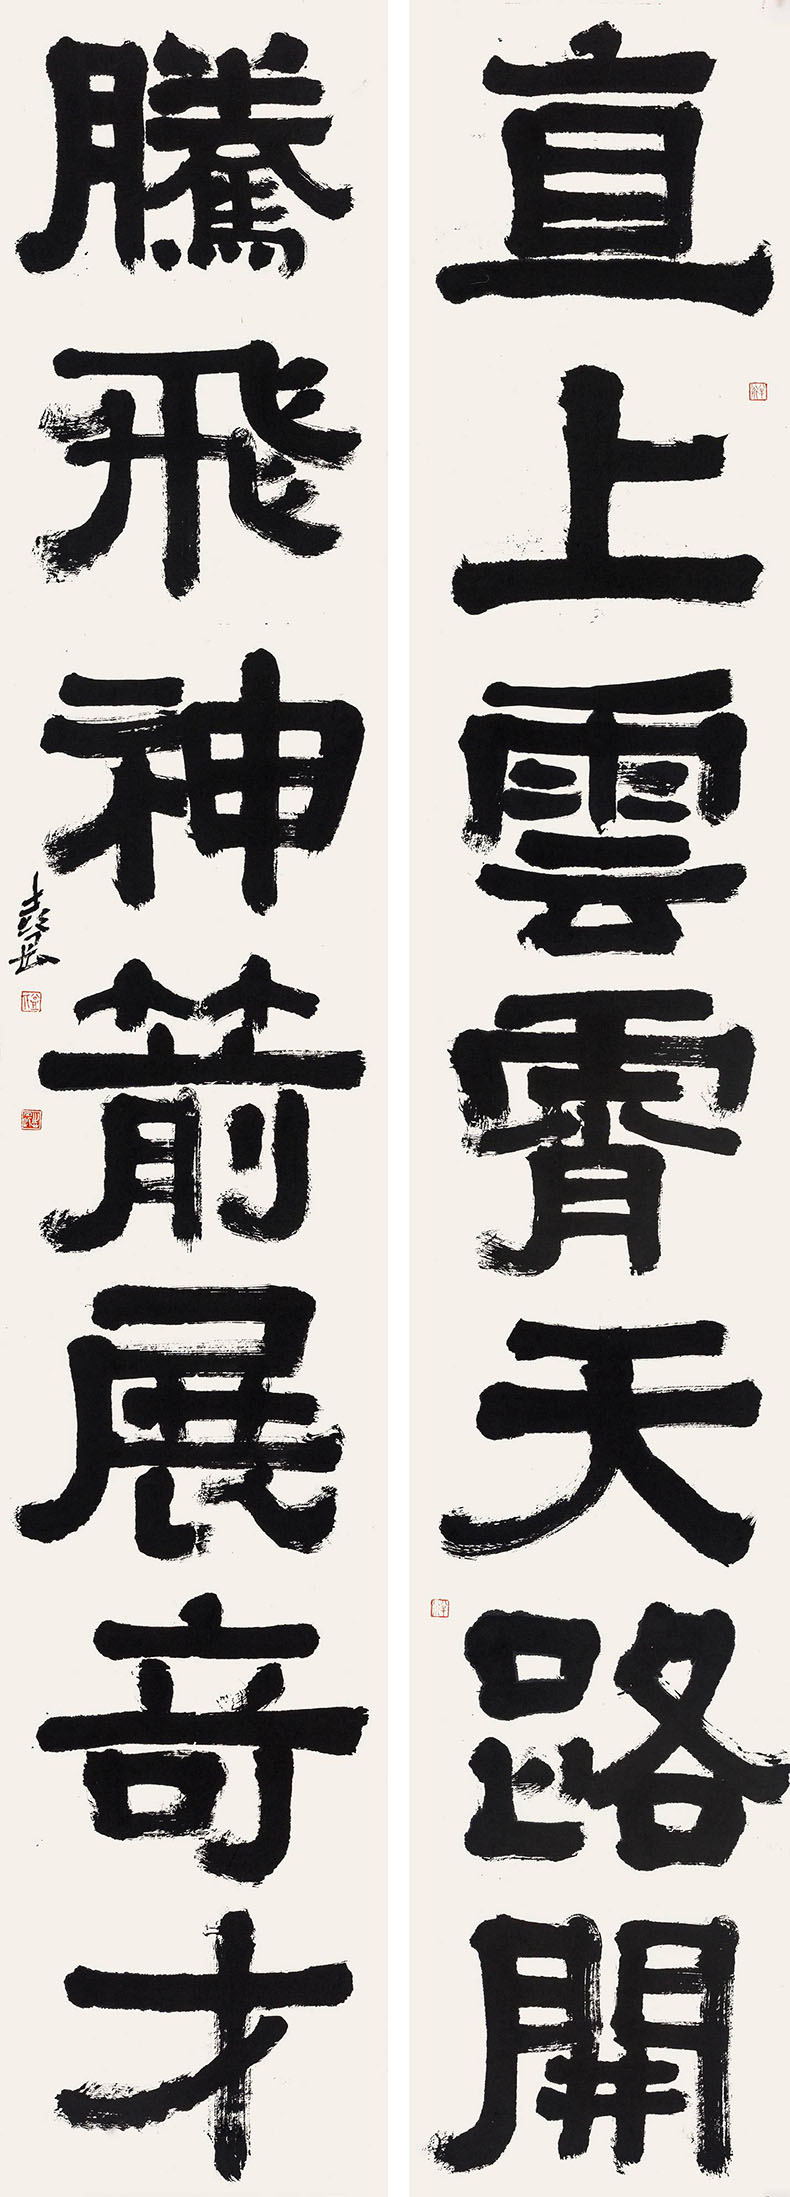 直上雲霄天路開
騰飛神箭展奇才